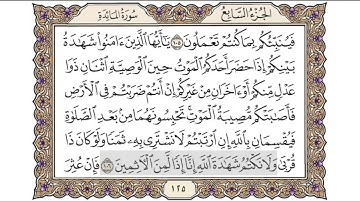 الجزء السابع
سورة المائدة
فَيُنَبِّئُكُم بِمَا كُنتُمْ تَعْمَلُونَ ١٠٥ يَٰٓأَيُّهَا ٱلَّذِينَ ءَامَنُوا۟ شَهَٰدَةُ
بَيْنِكُمْ إِذَا حَضَرَ أَحَدَكُمُ ٱلْمَوْتُ حِينَ ٱلْوَصِيَّةِ ٱثْنَانِ ذَوَا
عَدْلٍ مِّنكُمْ أَوْ ءَاخَرَانِ مِنْ غَيْرِكُمْ إِنْ أَنتُمْ ضَرَبْتُمْ فِى ٱلْأَرْضِ
فَأَصَٰبَتْكُم مُّصِيبَةُ ٱلْمَوْتِ ۚ تَحْبِسُونَهُمَا مِنۢ بَعْدِ ٱلصَّلَوٰةِ
فَيُقْسِمَانِ بِٱللَّهِ إِنِ ٱرْتَبْتُمْ لَا نَشْتَرِى بِهِۦ ثَمَنًا وَلَوْ كَانَ ذَا
قُرْبَىٰ ۙ وَلَا نَكْتُمُ شَهَٰدَةَ ٱللَّهِ إِنَّآ إِذًا لَّمِنَ ٱلْءَاثِمِينَ ١٠٦ فَإِنْ عُثِرَ
١٢٥